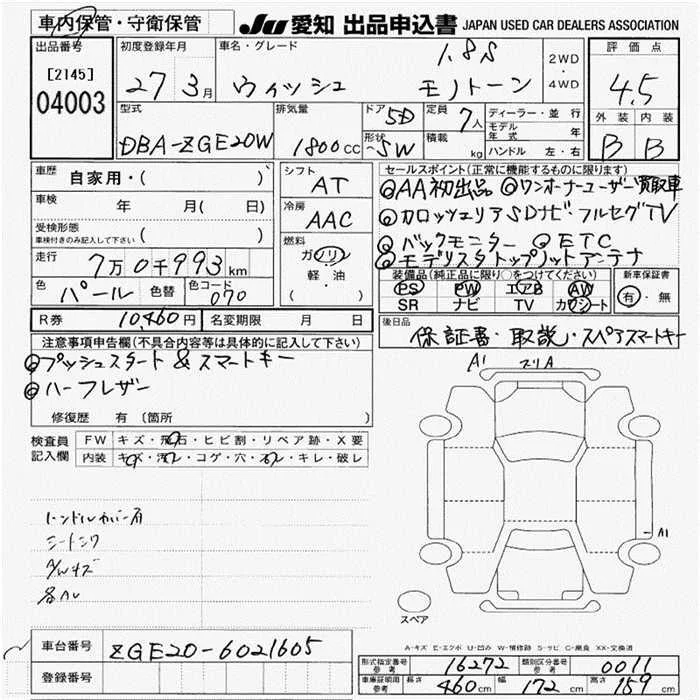 車内保管・守衛保管
JU 愛知 出品申込書 JAPAN USED CAR DEALERS ASSOCIATION
出品番号
[2145]
04003
初度登録年月
27 3月
車名・グレード
1.8S
ウィッシュ モノトーン
2WD
・
4WD
評価点
4.5
外装 内装
B B
型式
DBA-ZGE20W
排気量
1800cc
ドア 5D
形状 5W
定員 7人
積載 kg
ディーラー・並行
モデル年式 年
ハンドル 左・右
車歴
自家用・( )
車検 年 月( 日)
受検形態
車検付きのみ記入して下さい ( )
走行
7万0千993km
色 パール 色替 色コード 070
シフト
AT
冷房
AAC
燃料
ガソリン
軽・油
( )
セールスポイント(正常に機能するものに限ります)
◎AA初出品 ◎ワンオーナーユーザー買取車
◎カロッツェリアSDナビ・フルセグTV
◎バックモニター ◎ETC
◎モデリスタトップノットアンテナ
装備品(純正品に限り○をつけてください)
PS PW エアB AW
SR ナビ TV カワシート
新車保証書
有・無
R券 10,460円 名変期限 月 日
後日品
保証書・取説・スペアスマートキー
注意事項申告欄(不具合内容等は具体的に記入して下さい)
◎プッシュスタート&スマートキー
◎ハーフレザー
修復歴 有 〔箇所 〕
検査員記入欄
FW キズ・飛石・ヒビ割・リペア跡・X要
内装 キズ・汚レ・コゲ・穴・スレ・キレ・破レ
ハンドルカバー有
シートシワ
A/Wキズ
A1 スリA
A1
スペア
A-キズ E-エクボ U-凹み W-補修跡 S-サビ C-腐食 XX-交換済
車台番号 ZGE20-6021605
登録番号
形式指定番号 参考 16272 類別区分番号 参考 0011
車庫証明用 参考 長さ 460cm 幅 172cm 高さ 159cm